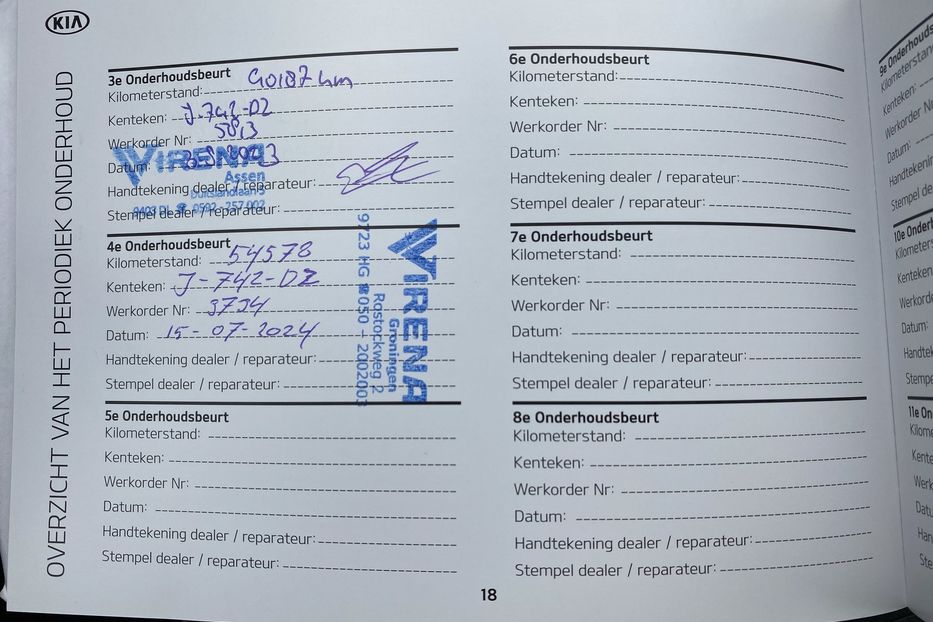 KIA
OVERZICHT VAN HET PERIODIEK ONDERHOUD
3e Onderhoudsbeurt
Kilometerstand: 40187 km
Kenteken: J-742-DZ
Werkorder Nr: 5813
Datum:
Handtekening dealer / reparateur:
Stempel dealer / reparateur:
VIRENA
Assen
Duitslandlaan 3
9403 DL ☎ 0592 - 257 002
4e Onderhoudsbeurt
Kilometerstand: 54578
Kenteken: J-742-DZ
Werkorder Nr: 3734
Datum: 15-07-2024
Handtekening dealer / reparateur:
Stempel dealer / reparateur:
VIRENA
Groningen
Rostockweg 2
9723 HG ☎ 050 - 2002003
5e Onderhoudsbeurt
Kilometerstand:
Kenteken:
Werkorder Nr:
Datum:
Handtekening dealer / reparateur:
Stempel dealer / reparateur:
6e Onderhoudsbeurt
Kilometerstand:
Kenteken:
Werkorder Nr:
Datum:
Handtekening dealer / reparateur:
Stempel dealer / reparateur:
7e Onderhoudsbeurt
Kilometerstand:
Kenteken:
Werkorder Nr:
Datum:
Handtekening dealer / reparateur:
Stempel dealer / reparateur:
8e Onderhoudsbeurt
Kilometerstand:
Kenteken:
Werkorder Nr:
Datum:
Handtekening dealer / reparateur:
Stempel dealer / reparateur:
18
9e Onderhouds
Kilometerstan
Kenteken:
Werkorder N
Datum:
Handtekenin
Stempel de
10e Onder
Kilometers
Kenteken
Werkorde
Datum:
Handtek
Stempe
11e On
Kilome
Kente
Werk
Datu
Han
Ste